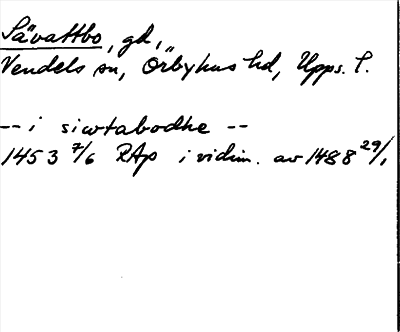 Sävattbo, gd,
Vendels sn, Örbyhus hd, Upps. l.
-- i siwtabodhe --
1453 7/6 RAp i vidim. av 1488 29/1